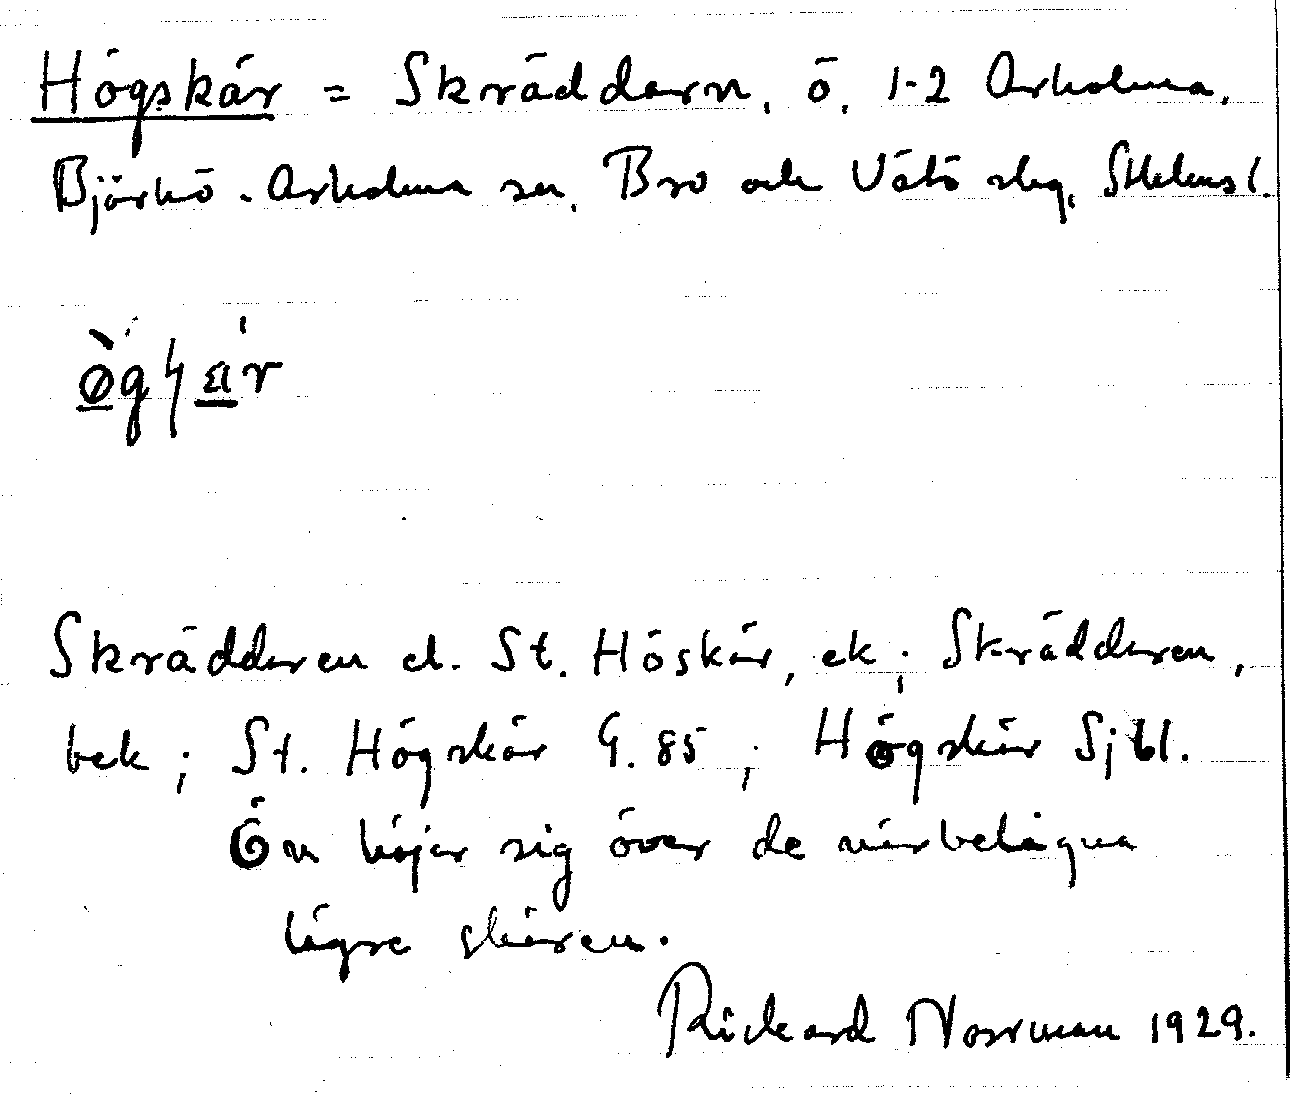 Högskär = Skräddarn, ö, 1-2 Arholma,
Björkö-Arholma sn, Bro och Vätö skg, Sthlms l.
Skräddaren el. St. Höskär, ek; Skräddaren,
bek; St. Högskär G. 85; Högskär Sjkl.
Ön höjer sig över de närbelägna
lägre skären.
Rickard Norrman 1929.